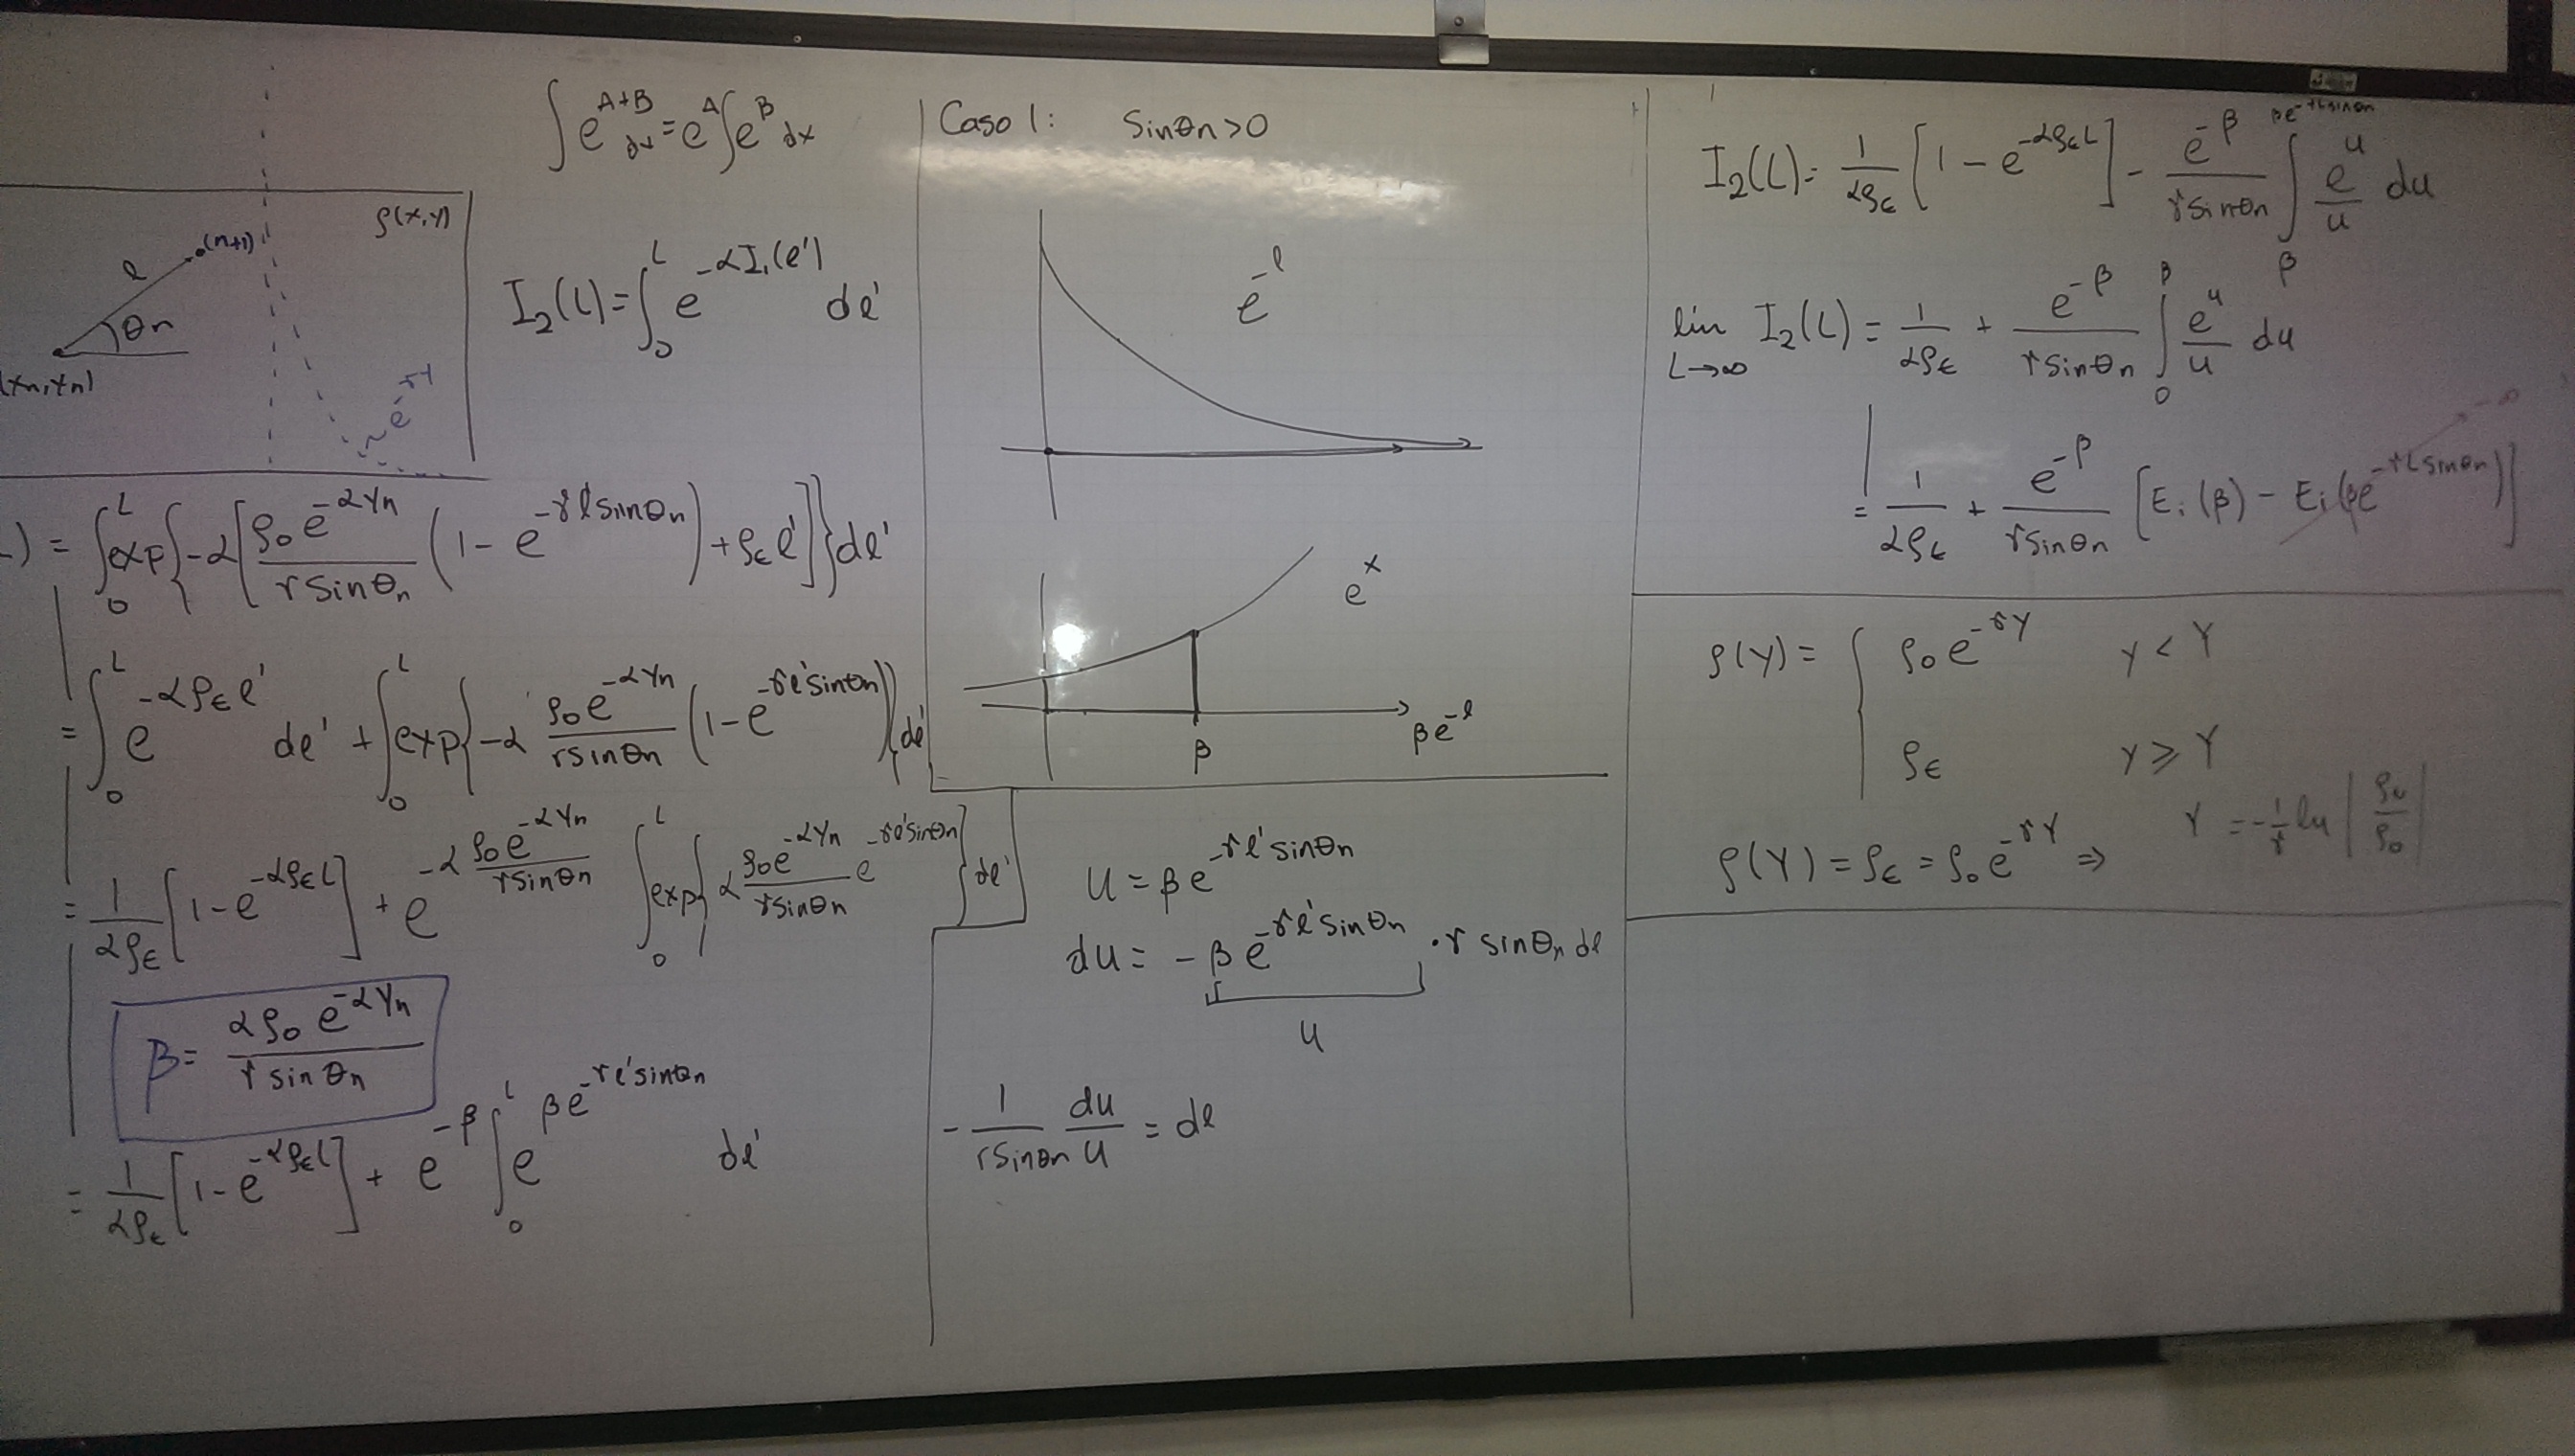 ∫ e^{A+B} dx = e^A ∫ e^B dx
ρ(x,y)
(n+1)
l
θn
(xn, yn)
~ e^{-γy}
I₂(L) = ∫₀^L e^{-αI₁(l')} dl'
) = ∫₀^L exp{-α[ρ₀e^{-αyn}/(γ sinθn) (1 - e^{-γl' sinθn}) + ρ_ε l']} dl'
= ∫₀^L e^{-αρ_ε l'} dl' + ∫₀^L exp{-α ρ₀e^{-αyn}/(γ sinθn) (1 - e^{-γl' sinθn})} dl'
= 1/(αρ_ε) [1 - e^{-αρ_ε L}] + e^{-α ρ₀e^{-αyn}/(γ sinθn)} ∫₀^L exp{α ρ₀e^{-αyn}/(γ sinθn) e^{-γl' sinθn}} dl'
β = αρ₀ e^{-αyn}/(γ sinθn)
= 1/(αρ_ε) [1 - e^{-αρ_ε L}] + e^{-β} ∫₀^L e^{βe^{-γl' sinθn}} dl'
Caso 1: sinθn > 0
e^{-l}
e^x
β
βe^{-l}
u = βe^{-γl' sinθn}
du = -βe^{-γl' sinθn} · γ sinθn dl
u
-1/(γ sinθn) du/u = dl
I₂(L) = 1/(αρ_ε) [1 - e^{-αρ_ε L}] - e^{-β}/(γ sinθn) ∫_β^{βe^{-γL sinθn}} e^u/u du
lim_{L→∞} I₂(L) = 1/(αρ_ε) + e^{-β}/(γ sinθn) ∫₀^β e^u/u du
= 1/(αρ_ε) + e^{-β}/(γ sinθn) [Ei(β) - Ei(βe^{-γL sinθn})]
-∞
ρ(y) = { ρ₀e^{-γy} y < Y
ρ_ε y ⩾ Y
ρ(Y) = ρ_ε = ρ₀e^{-γY} ⇒ Y = -1/γ ln |ρ_ε/ρ₀|